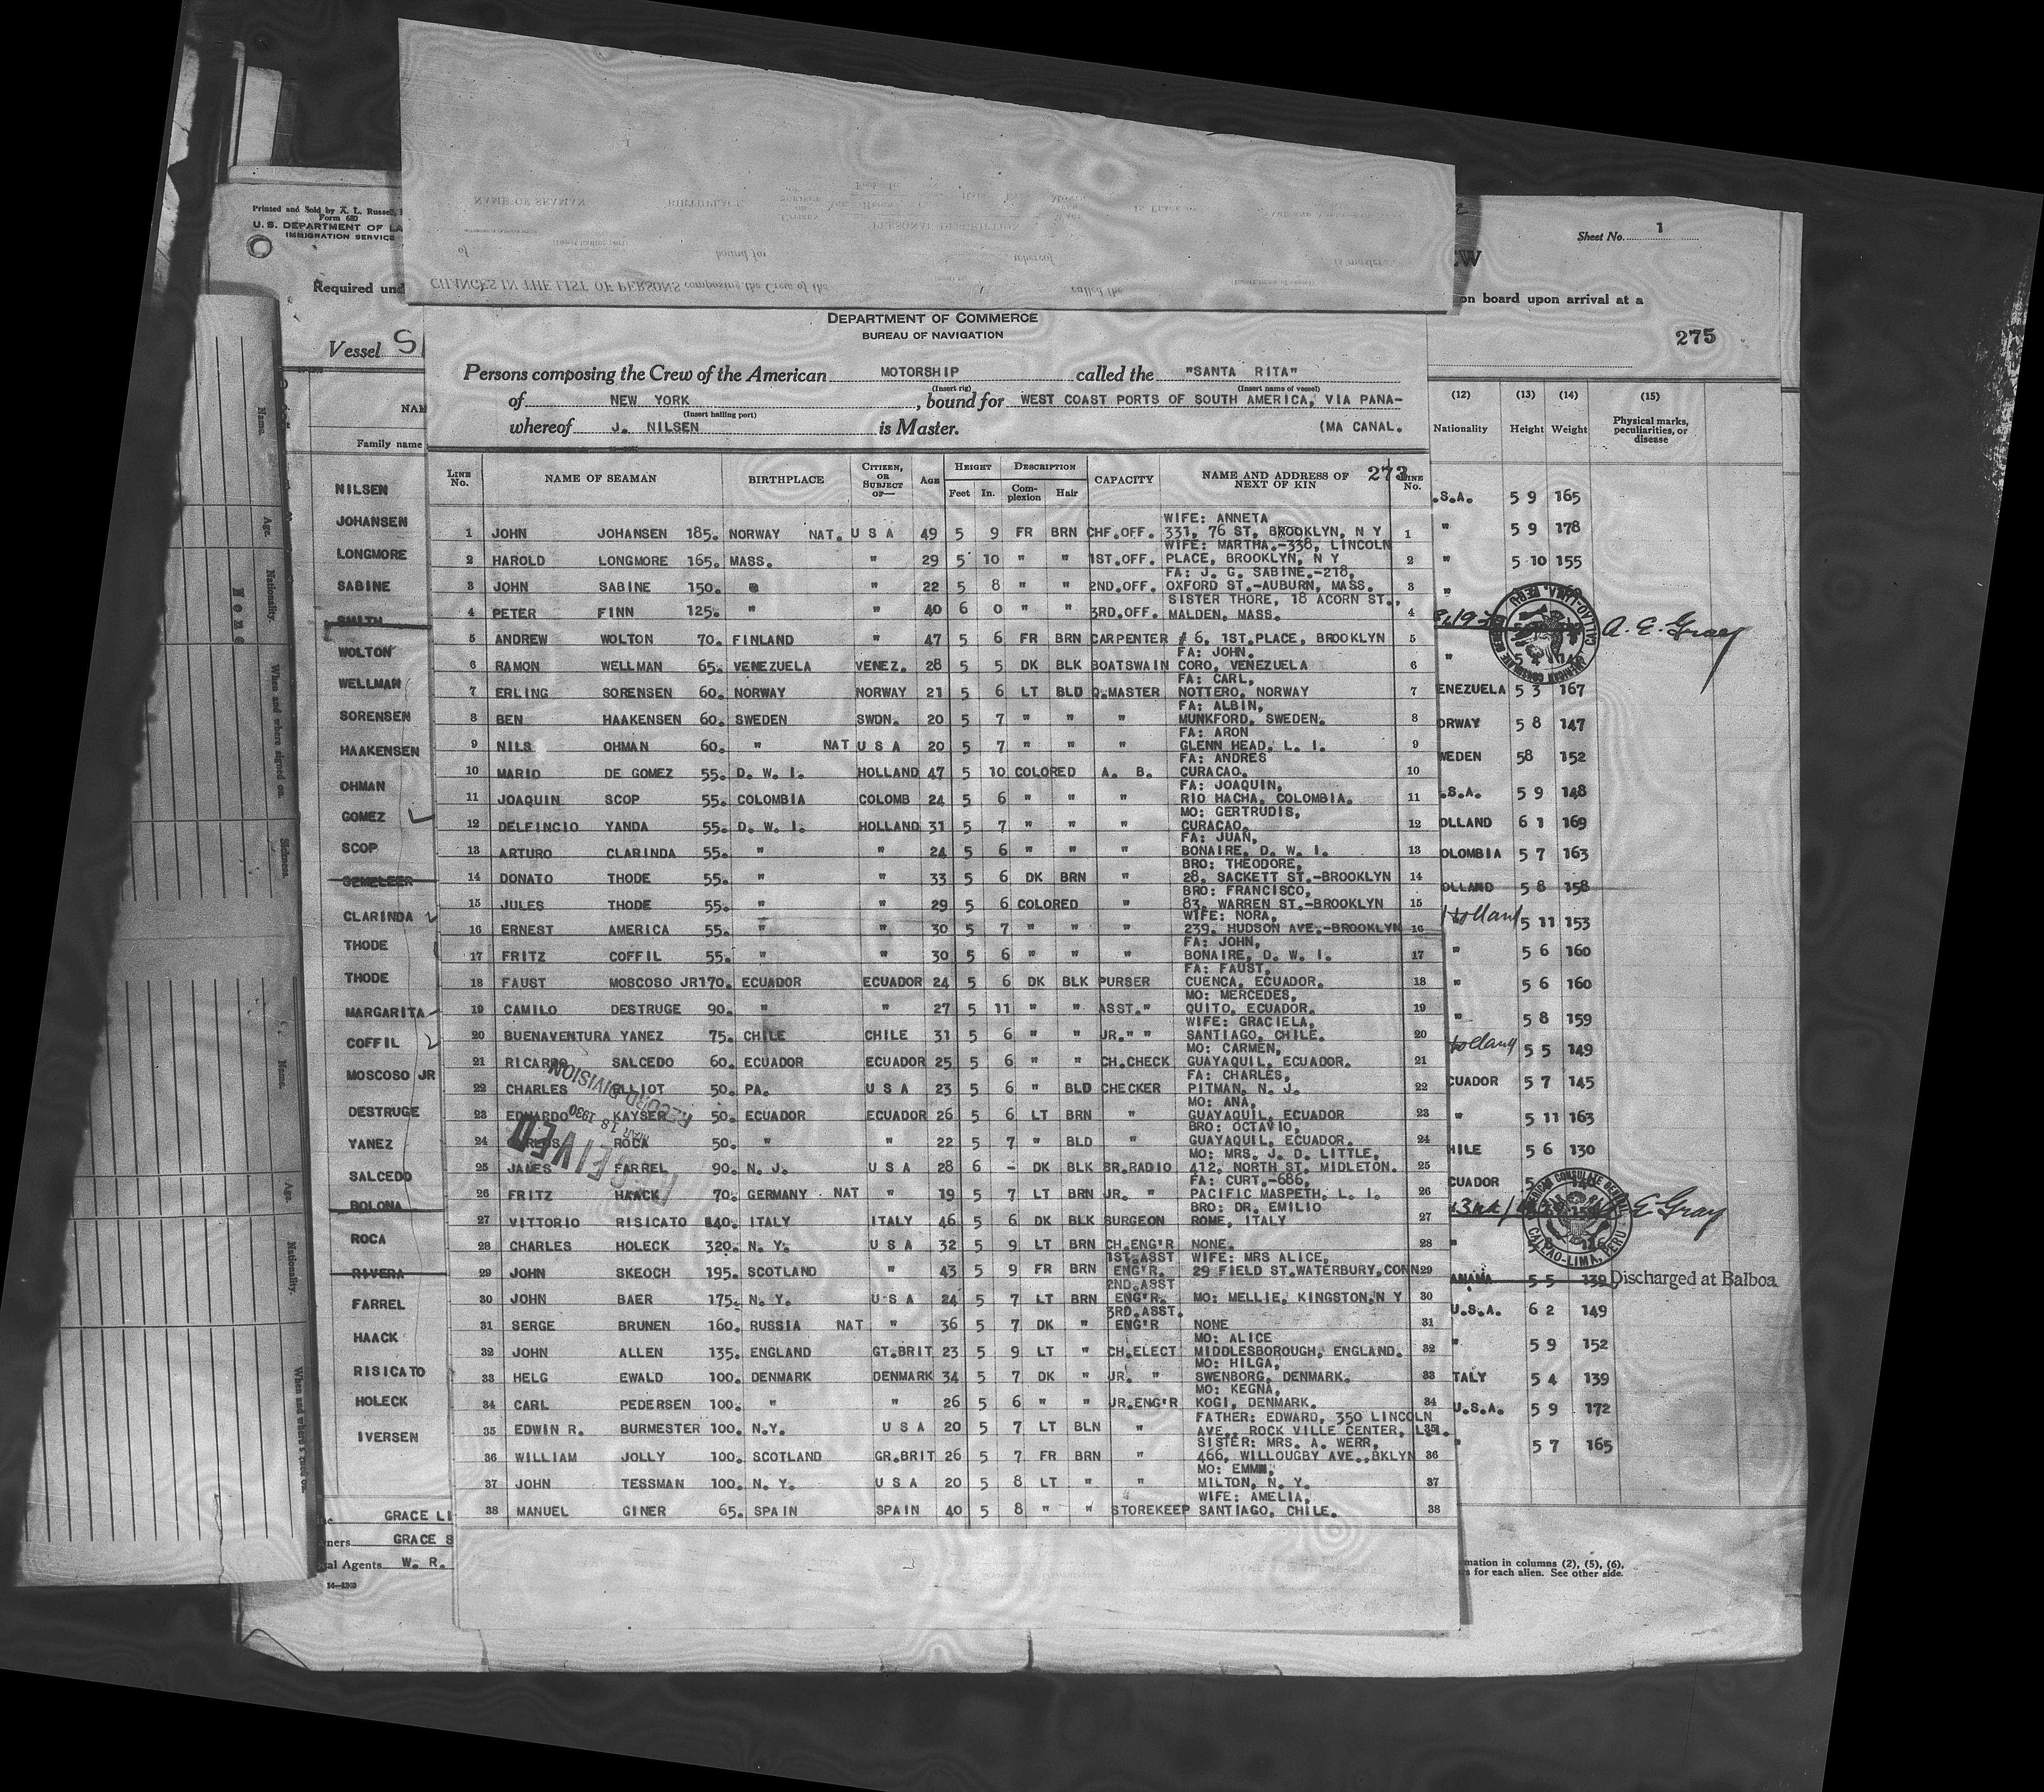 Printed and Sold by A. L. Russell,
Form 680
U. S. DEPARTMENT OF LA
IMMIGRATION SERVICE
Required und
Vessel S
NAM
Family name
NILSEN
JOHANSEN
LONGMORE
SABINE
SMITH
WOLTON
WELLMAN
SORENSEN
HAAKENSEN
OHMAN
GOMEZ
SCOP
SEMELEER
CLARINDA
THODE
THODE
MARGARITA
COFFIL
MOSCOSO JR
DESTRUGE
YANEZ
SALCEDO
BOLONA
ROCA
RIVERA
FARREL
HAACK
RISICATO
HOLECK
IVERSEN
GRACE LI
ners GRACE S
al Agents W. R.
14—1260
Name.
Age.
Nationality.
None
When and where signed on.
Sickness.
Name.
Age.
Nationality.
NAME OF SEAMAN BIRTHPLACE
PERSONAL DESCRIPTION
of bound for whereof is master
CHANGES IN THE LIST OF PERSONS composing the Crew of the called the
DEPARTMENT OF COMMERCE
BUREAU OF NAVIGATION
Persons composing the Crew of the American MOTORSHIP called the "SANTA RITA"
(Insert rig) (Insert name of vessel)
of NEW YORK, bound for WEST COAST PORTS OF SOUTH AMERICA, VIA PANA-
(Insert hailing port)
whereof J. NILSEN is Master. (MA CANAL.
LINE No. NAME OF SEAMAN BIRTHPLACE CITIZEN, OR SUBJECT OF— AGE HEIGHT Feet In. DESCRIPTION Complexion Hair CAPACITY NAME AND ADDRESS OF NEXT OF KIN 273 LINE No.
WIFE: ANNETA
1 JOHN JOHANSEN 185. NORWAY NAT. U S A 49 5 9 FR BRN CHF.OFF. 331, 76 ST, BROOKLYN, N Y 1
WIFE: MARTHA.-338, LINCOLN
2 HAROLD LONGMORE 165. MASS. " 29 5 10 " " 1ST.OFF. PLACE, BROOKLYN, N Y 2
FA: J. G. SABINE.-218,
3 JOHN SABINE 150. " 22 5 8 " " 2ND.OFF. OXFORD ST.-AUBURN, MASS. 3
SISTER THORE, 18 ACORN ST.,
4 PETER FINN 125. " " 40 6 0 " " 3RD.OFF. MALDEN, MASS. 4
5 ANDREW WOLTON 70. FINLAND " 47 5 6 FR BRN CARPENTER # 6, 1ST.PLACE, BROOKLYN 5
FA: JOHN.
6 RAMON WELLMAN 65. VENEZUELA VENEZ. 28 5 5 DK BLK BOATSWAIN CORO, VENEZUELA 6
FA: CARL,
7 ERLING SORENSEN 60. NORWAY NORWAY 21 5 6 LT BLD Q.MASTER NOTTERO, NORWAY 7
FA: ALBIN,
8 BEN HAAKENSEN 60. SWEDEN SWDN. 20 5 7 " " " MUNKFORD, SWEDEN. 8
FA: ARON
9 NILS OHMAN 60. " NAT U S A 20 5 7 " " " GLENN HEAD, L. I. 9
FA: ANDRES
10 MARIO DE GOMEZ 55. D. W. I. HOLLAND 47 5 10 COLORED A. B. CURACAO. 10
FA: JOAQUIN,
11 JOAQUIN SCOP 55. COLOMBIA COLOMB 24 5 6 " " " RIO HACHA, COLOMBIA. 11
MO: GERTRUDIS,
12 DELFINCIO YANDA 55. D. W. I. HOLLAND 31 5 7 " " " CURACAO. 12
FA: JUAN,
13 ARTURO CLARINDA 55. " " 24 5 6 " " " BONAIRE, D. W. I. 13
BRO: THEODORE,
14 DONATO THODE 55. " " 33 5 6 DK BRN " 28, SACKETT ST.-BROOKLYN 14
BRO: FRANCISCO,
15 JULES THODE 55. " " 29 5 6 COLORED " 83, WARREN ST.-BROOKLYN 15
WIFE: NORA,
16 ERNEST AMERICA 55. " " 30 5 7 " " " 239, HUDSON AVE.-BROOKLYN 16
FA: JOHN,
17 FRITZ COFFIL 55. " " 30 5 6 " " " BONAIRE, D. W. I. 17
FA: FAUST,
18 FAUST MOSCOSO JR 170. ECUADOR ECUADOR 24 5 6 DK BLK PURSER CUENCA, ECUADOR. 18
MO: MERCEDES,
19 CAMILO DESTRUGE 90. " " 27 5 11 " " ASST." QUITO, ECUADOR. 19
WIFE: GRACIELA,
20 BUENAVENTURA YANEZ 75. CHILE CHILE 31 5 6 " " JR." " SANTIAGO, CHILE. 20
MO: CARMEN,
21 RICARDO SALCEDO 60. ECUADOR ECUADOR 25 5 6 " " CH.CHECK GUAYAQUIL, ECUADOR. 21
FA: CHARLES,
22 CHARLES ELLIOT 50. PA. U S A 23 5 6 " BLD CHECKER PITMAN, N. J. 22
MO: ANA,
23 EDUARDO KAYSER 50. ECUADOR ECUADOR 26 5 6 LT BRN " GUAYAQUIL, ECUADOR 23
BRO: OCTAVIO,
24 CARLOS ROCA 50. " " 22 5 7 " BLD " GUAYAQUIL, ECUADOR. 24
MO: MRS. J. D. LITTLE,
25 JAMES FARREL 90. N. J. U S A 28 6 - DK BLK SR.RADIO 412, NORTH ST. MIDLETON. 25
FA: CURT.-686,
26 FRITZ HAACK 70. GERMANY NAT " 19 5 7 LT BRN JR. " PACIFIC MASPETH, L. I. 26
BRO: DR. EMILIO
27 VITTORIO RISICATO 140. ITALY ITALY 46 5 6 DK BLK SURGEON ROME, ITALY 27
28 CHARLES HOLECK 320. N. Y. U S A 32 5 9 LT BRN CH.ENG'R NONE. 28
1ST.ASST WIFE: MRS ALICE,
29 JOHN SKEOCH 195. SCOTLAND " 43 5 9 FR BRN ENG'R. 29 FIELD ST.WATERBURY,CONN 29
2ND.ASST
30 JOHN BAER 175. N. Y. U S A 24 5 7 LT BRN ENG'R. MO: MELLIE, KINGSTON,N Y 30
3RD.ASST.
31 SERGE BRUNEN 160. RUSSIA NAT " 36 5 7 DK " ENG'R NONE 31
MO: ALICE
32 JOHN ALLEN 135. ENGLAND GT.BRIT 23 5 9 LT " CH.ELECT MIDDLESBOROUGH, ENGLAND. 32
MO: HILGA,
33 HELG EWALD 100. DENMARK DENMARK 34 5 7 DK " JR. " SWENBORG, DENMARK. 33
MO: KEGNA,
34 CARL PEDERSEN 100. " " 26 5 6 " " JR.ENG'R KOGI, DENMARK. 34
FATHER: EDWARD, 350 LINCOLN
35 EDWIN R. BURMESTER 100. N.Y. U S A 20 5 7 LT BLN " AVE., ROCK VILLE CENTER, L.I. 35
SISTER: MRS. A. WERR,
36 WILLIAM JOLLY 100. SCOTLAND GR.BRIT 26 5 7 FR BRN " 466, WILLOUGBY AVE.,BKLYN 36
MO: EMMA,
37 JOHN TESSMAN 100. N. Y. U S A 20 5 8 LT " " MILTON, N. Y. 37
WIFE: AMELIA,
38 MANUEL GINER 65. SPAIN SPAIN 40 5 8 " " STOREKEEP SANTIAGO, CHILE. 38
RECEIVED
MAR 18 1930
RECORD DIVISION
Sheet No. 1
EW
on board upon arrival at a
275
(12) (13) (14) (15)
Nationality Height Weight Physical marks, peculiarities, or disease
.S.A. 5 9 165
" 5 9 178
" 5 10 155
A. E. Gray
AMERICAN CONSULATE GENERAL CALLAO-LIMA, PERU
ENEZUELA 5 3 167
ORWAY 5 8 147
WEDEN 58 152
.S.A. 5 9 148
OLLAND 6 1 169
OLOMBIA 5 7 163
OLLAND 5 8 158
Holland 5 11 153
" 5 6 160
" 5 6 160
" 5 8 159
Holland 5 5 149
CUADOR 5 7 145
" 5 11 163
HILE 5 6 130
CUADOR 5
E Gray
AMERICAN CONSULATE GENERAL CALLAO-LIMA, PERU
ANAMA 5 5 139 Discharged at Balboa
U.S.A. 6 2 149
" 5 9 152
TALY 5 4 139
U.S.A. 5 9 172
" 5 7 165
mation in columns (2), (5), (6),
s for each alien. See other side.